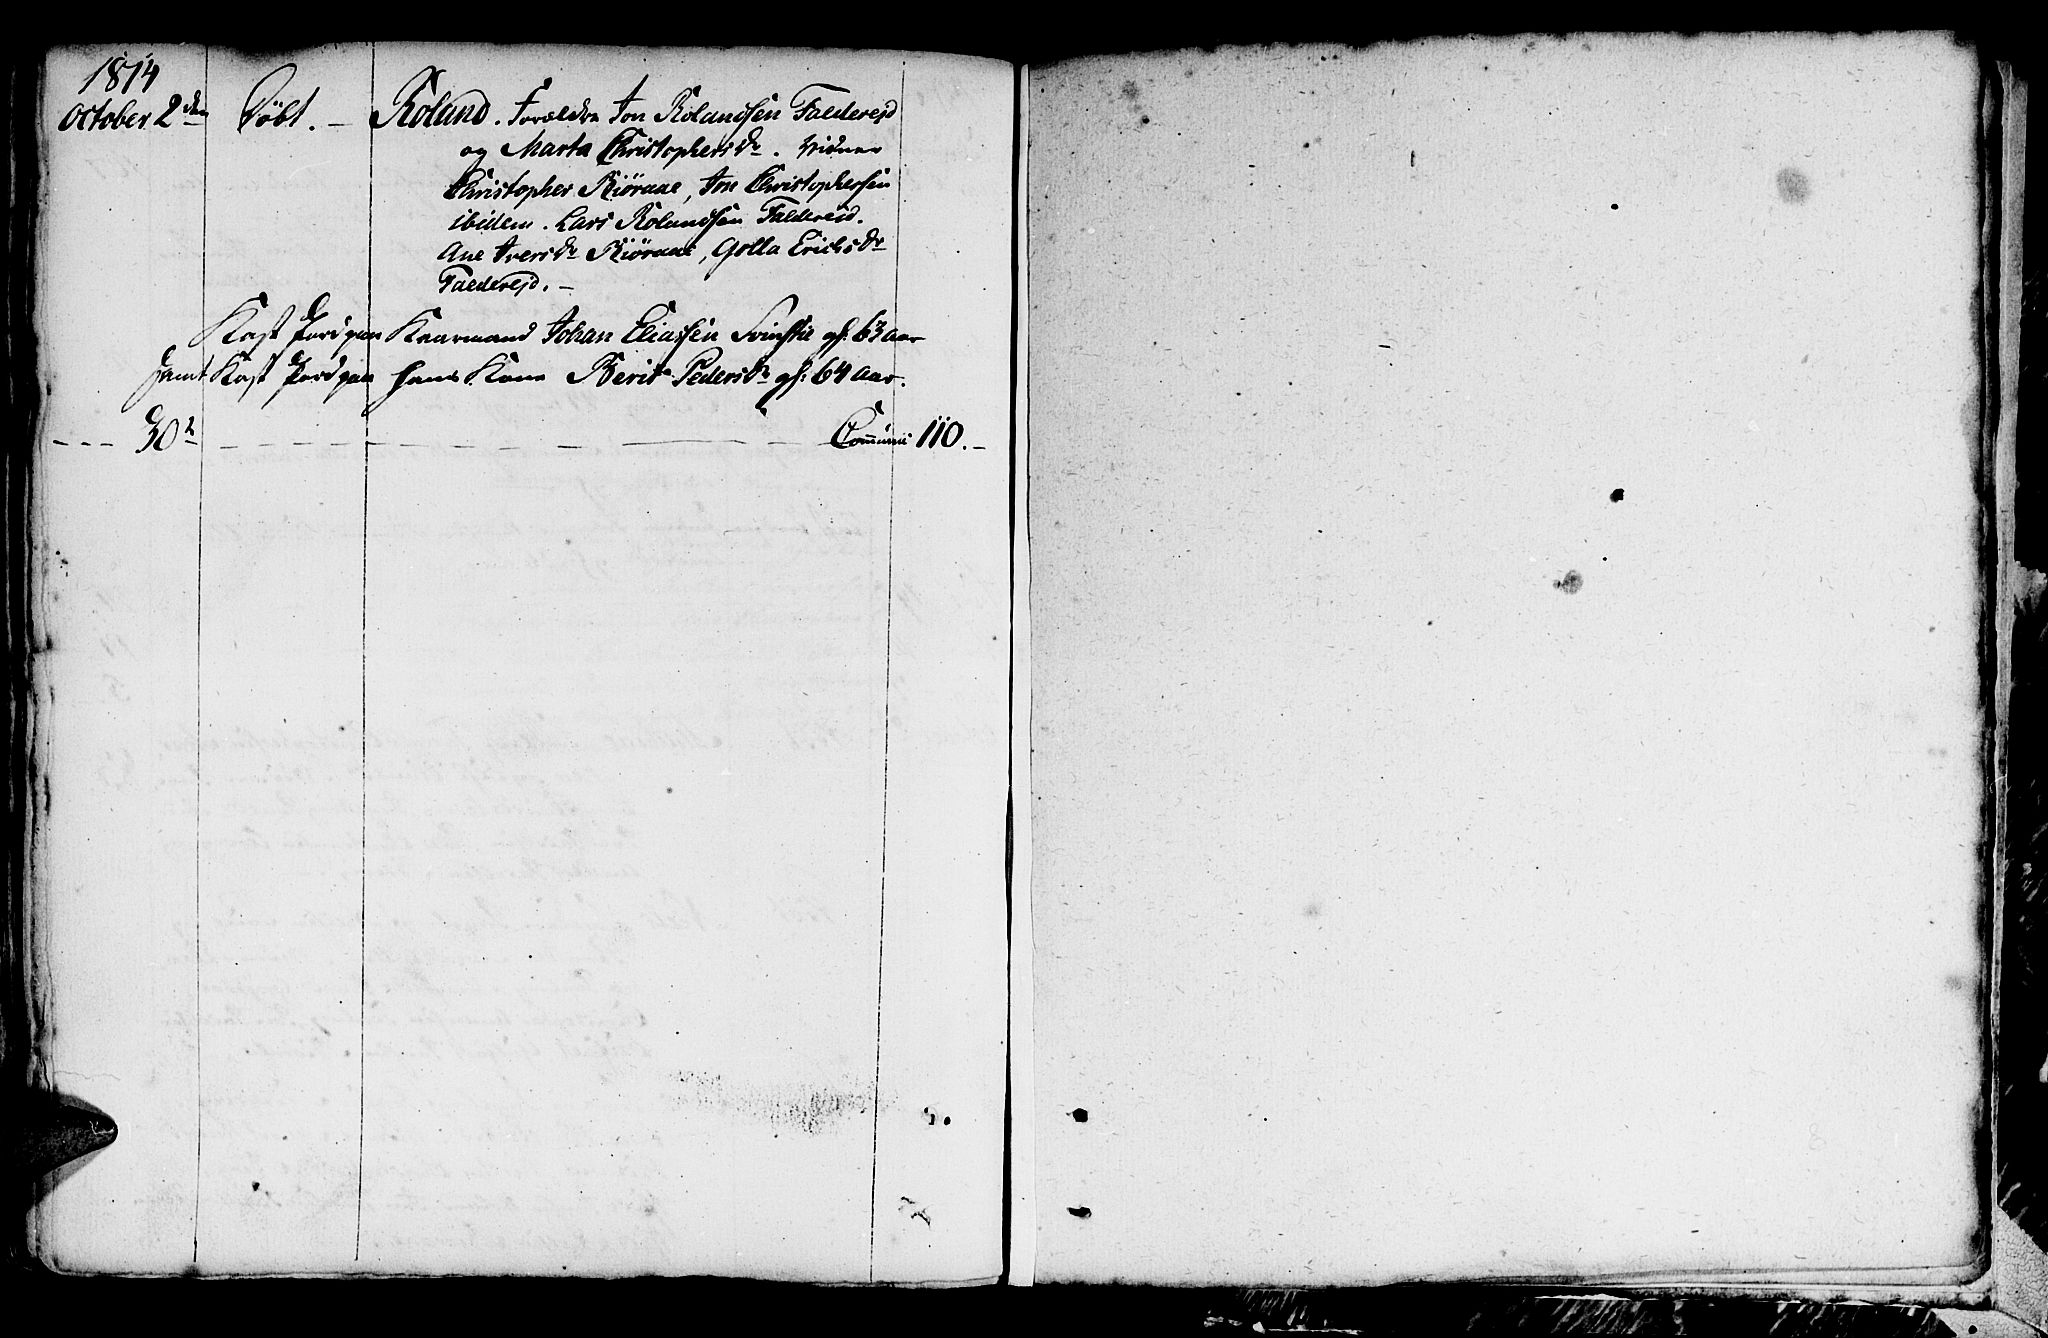 1814
October 2den Döbt. – Roland. Forældre Jon Rolandsen Faldereid
og Marta Christophersdr. Vidner
Christopher Kiöraae, Jon Christophersen
ibidem. Lars Rolandsen Faldereid.
Ane Iversdr Kiöraae, Golla Erichsdr
Faldereid. –
Kast Jord paa Kaarmand Johan Eliassen gl: 63 aar
samt Kast Jord paa hans Kone Berit Pedersdr gl: 64 aar.
--- 30 – – – Communi 110. –